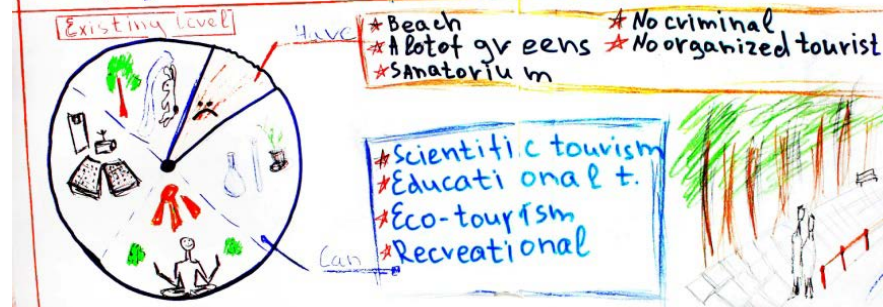 Existing level
Have
★ Beach
★ A lot of greens
★ SAnatorium
★ No criminal
★ No organized tourist
★ Scientific tourism
★ Educational t.
★ Eco-tourism
★ Recreational
Can